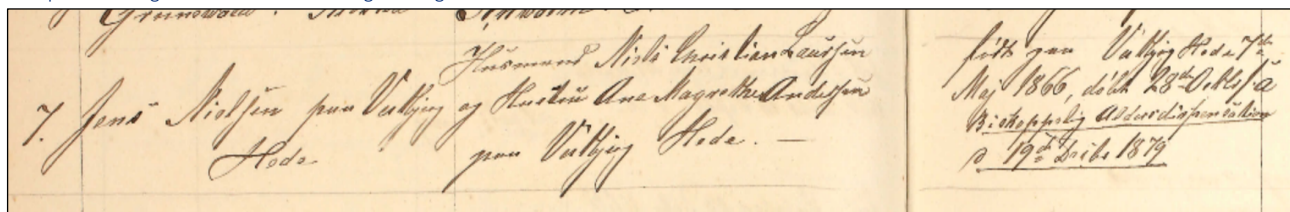 7. Jens Nielsen paa
Hede
Husmand Niels Christian Laursen
og Hustru Ane Magrethe Andersen
paa Hede. —
født paa Hede 7de
Maj 1866, døbt 28de Octbr s. A.
Biskoppelig Aldersdispensation
d 19de Decbr 1879